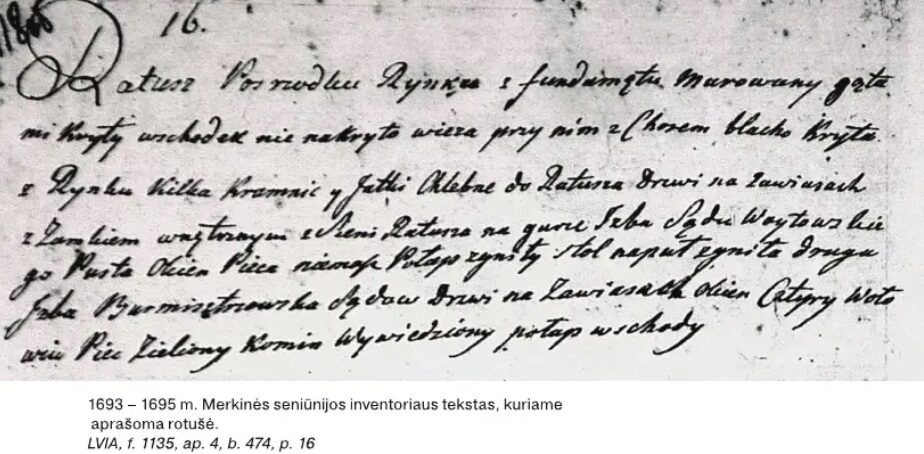 16.
Ratusz Posrzodku Rynku z fundamętu Murowany gęta
mi Kryty wschodek nie nakryto wieza przy nim z Chorem blacho Kryta
z Rynku Kilka Kramnic y Jatki Chlebne do Ratusza Drzwi na zawiasach
z Zamkiem wnętrznym z Sieni Ratusza na gurze Izba Sądu Woytowskie
go Pusta Okien Pieca niemasz Potap zynity stol naput zynita druga
Izba Burmisztrzowska Sądow Drzwi na Zawiasach Okien Cztyry Woło
Piec Zieliony Komin Wywiedziony potap wschody
1693 – 1695 m. Merkinės seniūnijos inventoriaus tekstas, kuriame
aprašoma rotušė.
LVIA, f. 1135, ap. 4, b. 474, p. 16